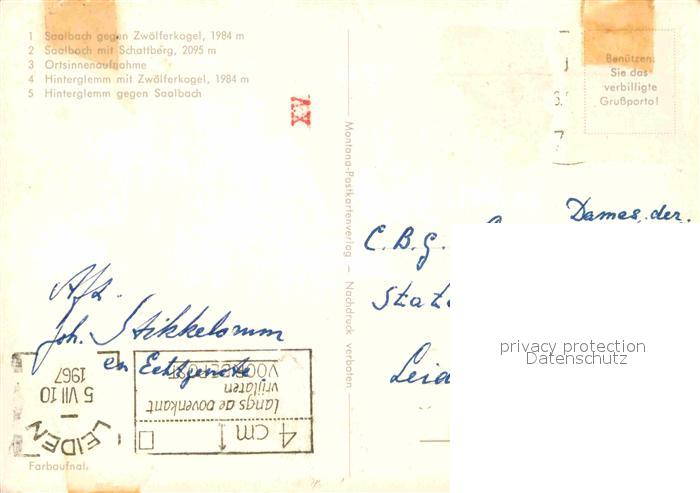 1 Saalbach gegen Zwölferkogel, 1984 m
2 Saalbach mit Schattberg, 2095 m
3 Ortsinnenaufnahme
4 Hinterglemm mit Zwölferkogel, 1984 m
5 Hinterglemm gegen Saalbach
XV
Benützen
Sie das
verbilligte
Grußporto!
Montana-Postkartenverlag – Nachdruck verboten
Dames, der
C.B.G.
Stat
Leid
Afz.
Joh. Stikkelorum
en Echtgenote
privacy protection
Datenschutz
4 cm
langs de bovenkant
vrijlaten
VOOR
LEIDEN
5 VII 10
1967
Farbaufnal.